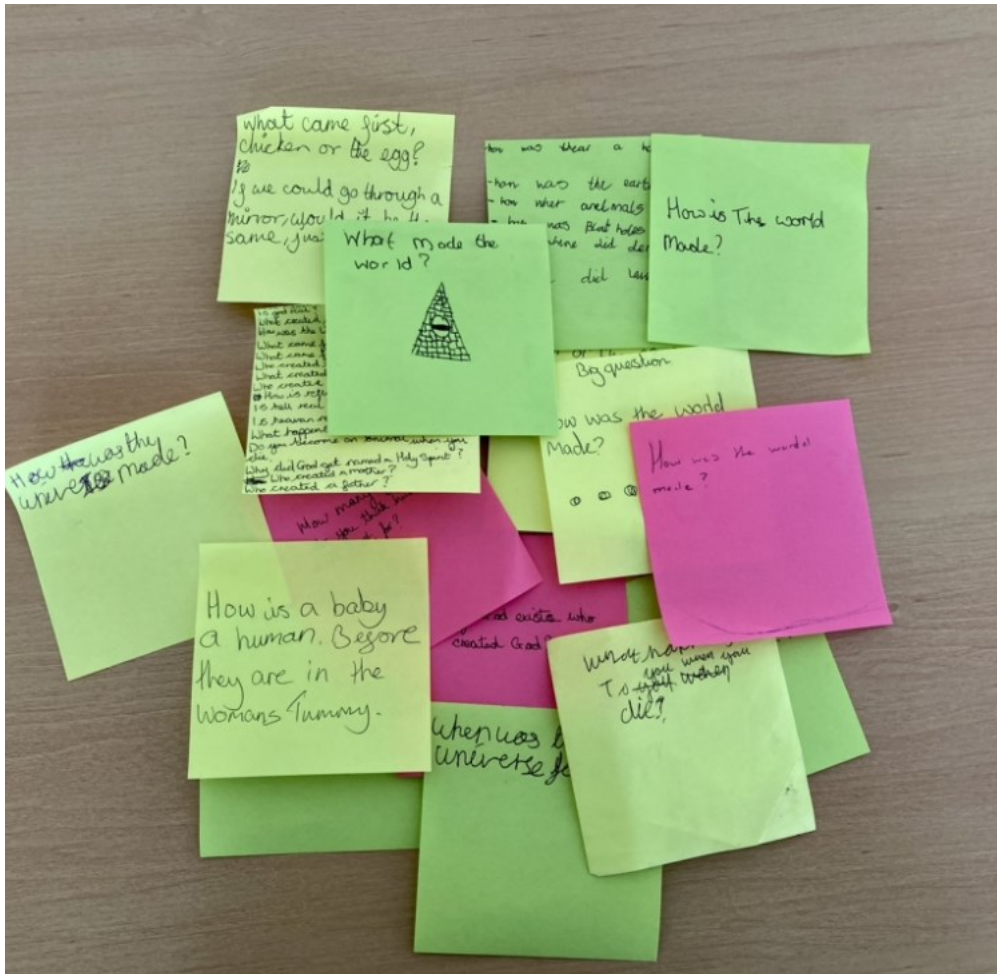 What came first,
chicken or the egg?
If we could go through a
mirror, would it be the
same, jus
how was thear a
-how was the eart
- how wher anelmals
- how was Blat holes
did
did
How is The world
Made?
What Made the
world?
Is god
What created
How was the
What came f
What came f
Who created
What created
Who created
How is
Is hell real
Is heaven
What happen
Do you become an animal when you
die.
Why did God get named a Holy Spirit?
Who created a mother?
Who created a father?
Big question
How was the world
Made?
How was the world
made?
How was thy
made?
How many
you think
for?
How is a baby
a human. Before
they are in the
womans Tummy.
God exists who
created God?
What hap
you when you
To
die?
When was
universe fo